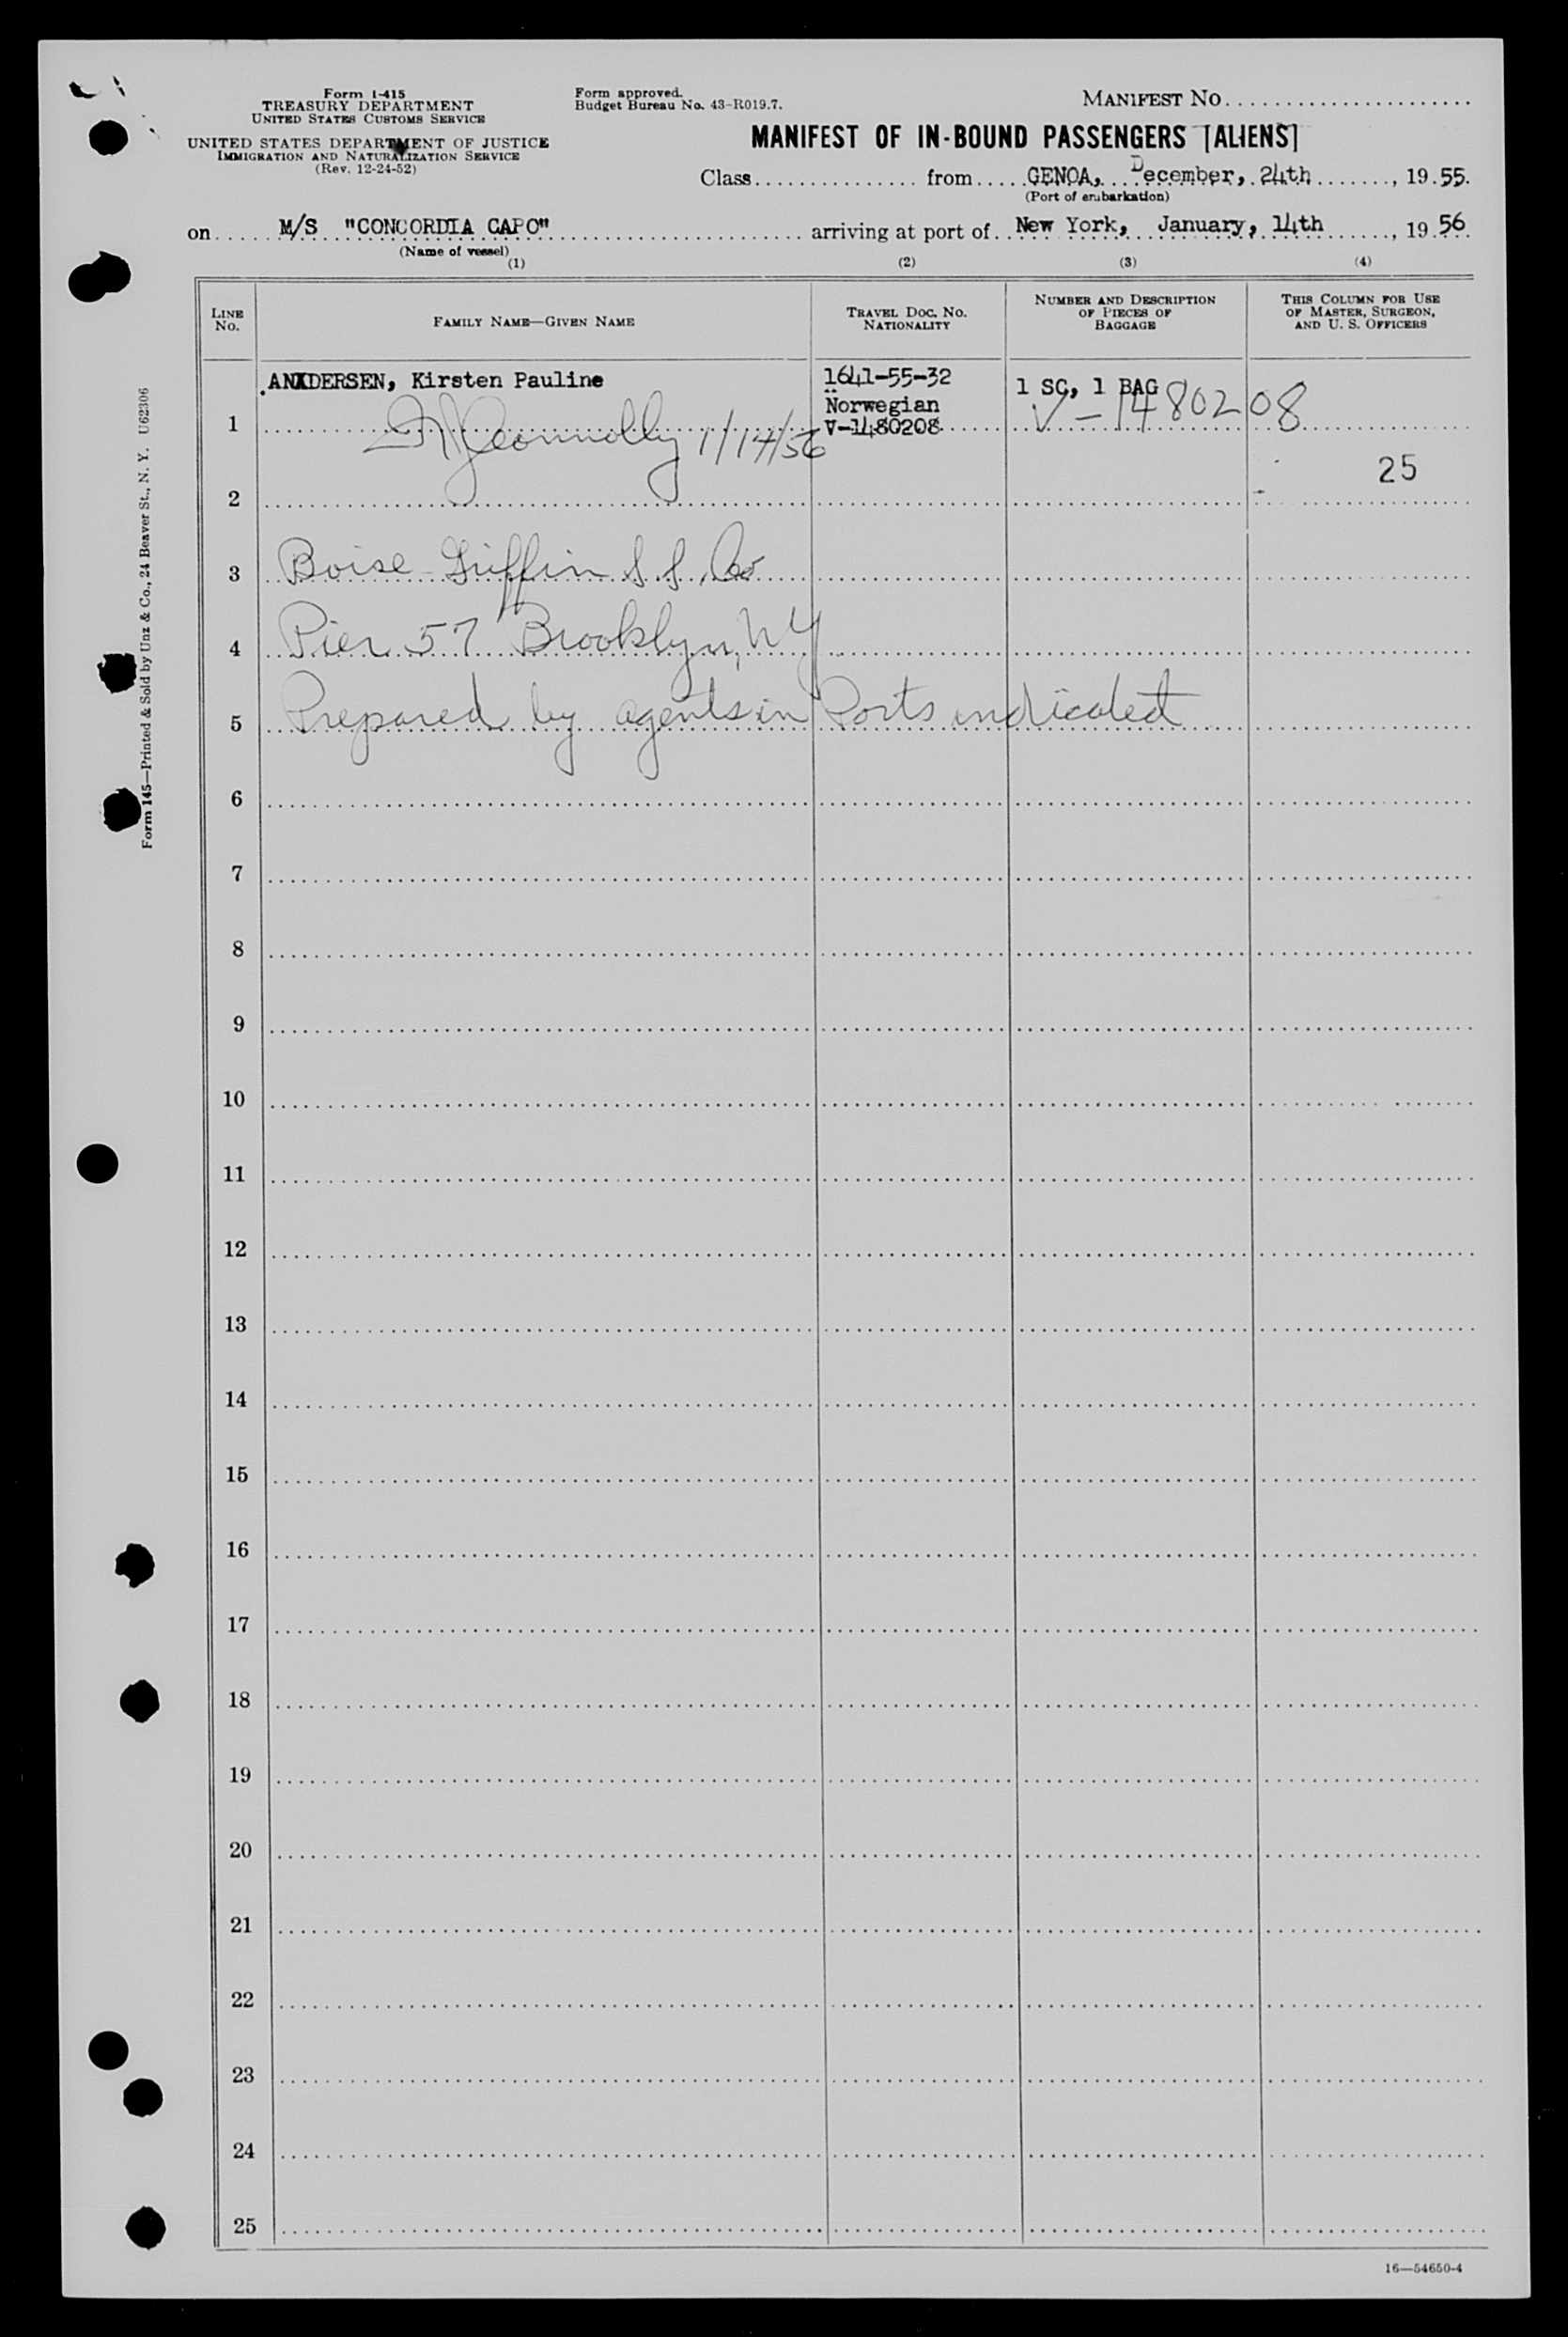 Form I-415
TREASURY DEPARTMENT
UNITED STATES CUSTOMS SERVICE
UNITED STATES DEPARTMENT OF JUSTICE
IMMIGRATION AND NATURALIZATION SERVICE
(Rev. 12-24-52)
Form approved.
Budget Bureau No. 43-R019.7.
MANIFEST NO.
MANIFEST OF IN-BOUND PASSENGERS [ALIENS]
Class from GENOA, December, 24th, 19 55.
(Port of embarkation)
on M/S "CONCORDIA CAPO" arriving at port of New York, January, 14th, 19 56
(Name of vessel)
(1) (2) (3) (4)
LINE No. FAMILY NAME—GIVEN NAME TRAVEL DOC. NO. NATIONALITY NUMBER AND DESCRIPTION OF PIECES OF BAGGAGE THIS COLUMN FOR USE OF MASTER, SURGEON, AND U. S. OFFICERS
ANXDERSEN, Kirsten Pauline 1641-55-32 1 SC, 1 BAG
Norwegian V-1480208
1 V-1480208
Connolly 1/14/56
25
2
3 Boise Griffin S S Co
4 Pier 57 Brooklyn, NY
5 Prepared by agents in Ports indicated
6
7
8
9
10
11
12
13
14
15
16
17
18
19
20
21
22
23
24
25
16—54650-4
Form 145—Printed & Sold by Unz & Co., 24 Beaver St., N. Y. U62306